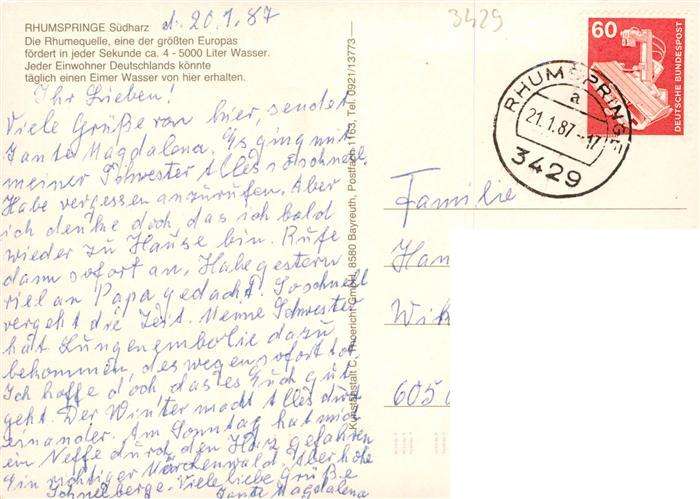 RHUMSPRINGE Südharz d. 20.1.87
Die Rhumequelle, eine der größten Europas
fördert in jeder Sekunde ca. 4 - 5000 Liter Wasser.
Jeder Einwohner Deutschlands könnte
täglich einen Eimer Wasser von hier erhalten.
Ihr Lieben!
Viele Grüße von hier, sendet
Tante Magdalena. Es ging mit
meiner Schwester alles so schnell.
Habe vergessen anzurufen. Aber
ich denke doch, das ich bald
wieder zu Hause bin. Rufe
dann sofort an. Habe gestern
viel an Papa gedacht. So schnell
vergeht die Zeit. Meine Schwester
hat Lungenembolie dazu
bekommen, deswegen sofort tot.
Ich hoffe doch das es Euch gut
geht. Der Winter macht Alles durch
einander. Am Sonntag hat mich
ein Neffe durch den Harz gefahren
Ein richtiger Märchenwald. Aber hohe
Schneeberge. Viele liebe Grüße
Tante Magdalena
Kunstanstalt C. Thoericht GmbH, 8580 Bayreuth, Postfach 1163, Tel. 0921/13773
3429
60
DEUTSCHE BUNDESPOST
RHUMSPRINGE
a
21.1.87-17
3429
Familie
Han
6050